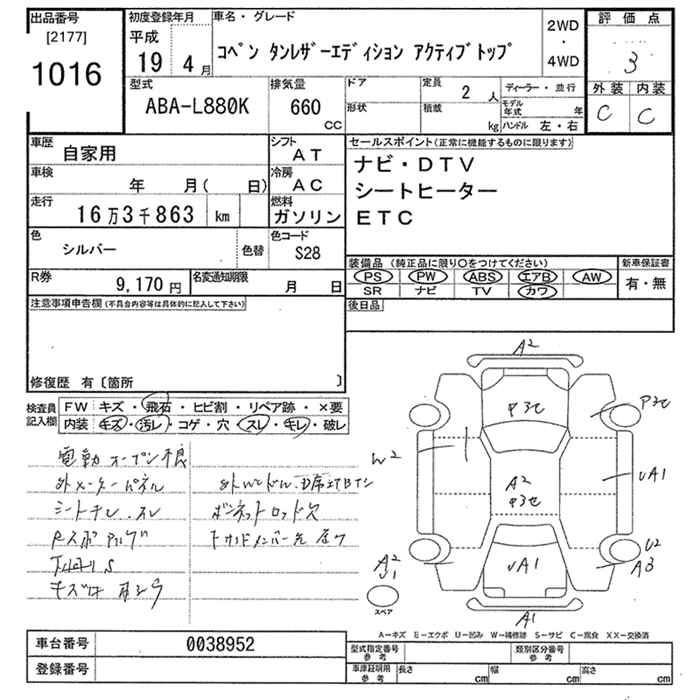 出品番号
[2177]
1016
初度登録年月
平成
19年 4月
車名・グレード
コペン タンレザーエディション アクティブトップ
2WD
・
4WD
評価点
3
外装 内装
C C
型式
ABA-L880K
排気量
660
CC
ドア
形状
定員
2 人
積載
kg
ディーラー・並行
モデル年式 年
ハンドル 左・右
車歴
自家用
シフト
AT
車検
年 月( 日)
冷房
AC
走行
16万3千863 km
燃料
ガソリン
色
シルバー
色替
色コード
S28
R券
9,170 円
名変通知期限
月 日
セールスポイント(正常に機能するものに限ります)
ナビ・DTV
シートヒーター
ETC
装備品 (純正品に限り○をつけてください)
PS PW ABS エアB AW
SR ナビ TV カワ
新車保証書
有・無
後日品
注意事項申告欄 (不具合内容等は具体的に記入して下さい)
修復歴 有〔箇所 〕
検査員記入欄
FW キズ・飛石・ヒビ割・リペア跡・×要
内装 キズ・汚レ・コゲ・穴・スレ・キレ・破レ
電動オープン不良
外メーターパネル
シートキレ.スレ
A2
P3
W2
A2
UA1
U2
A3
A2
UA1
A1
スペア
A−キズ E−エクボ U−凹み W−補修跡 S−サビ C−腐食 XX−交換済
車台番号
0038952
登録番号
型式指定番号
参考
類別区分番号
参考
車庫証明用
参考
長さ cm
幅 cm
高さ cm